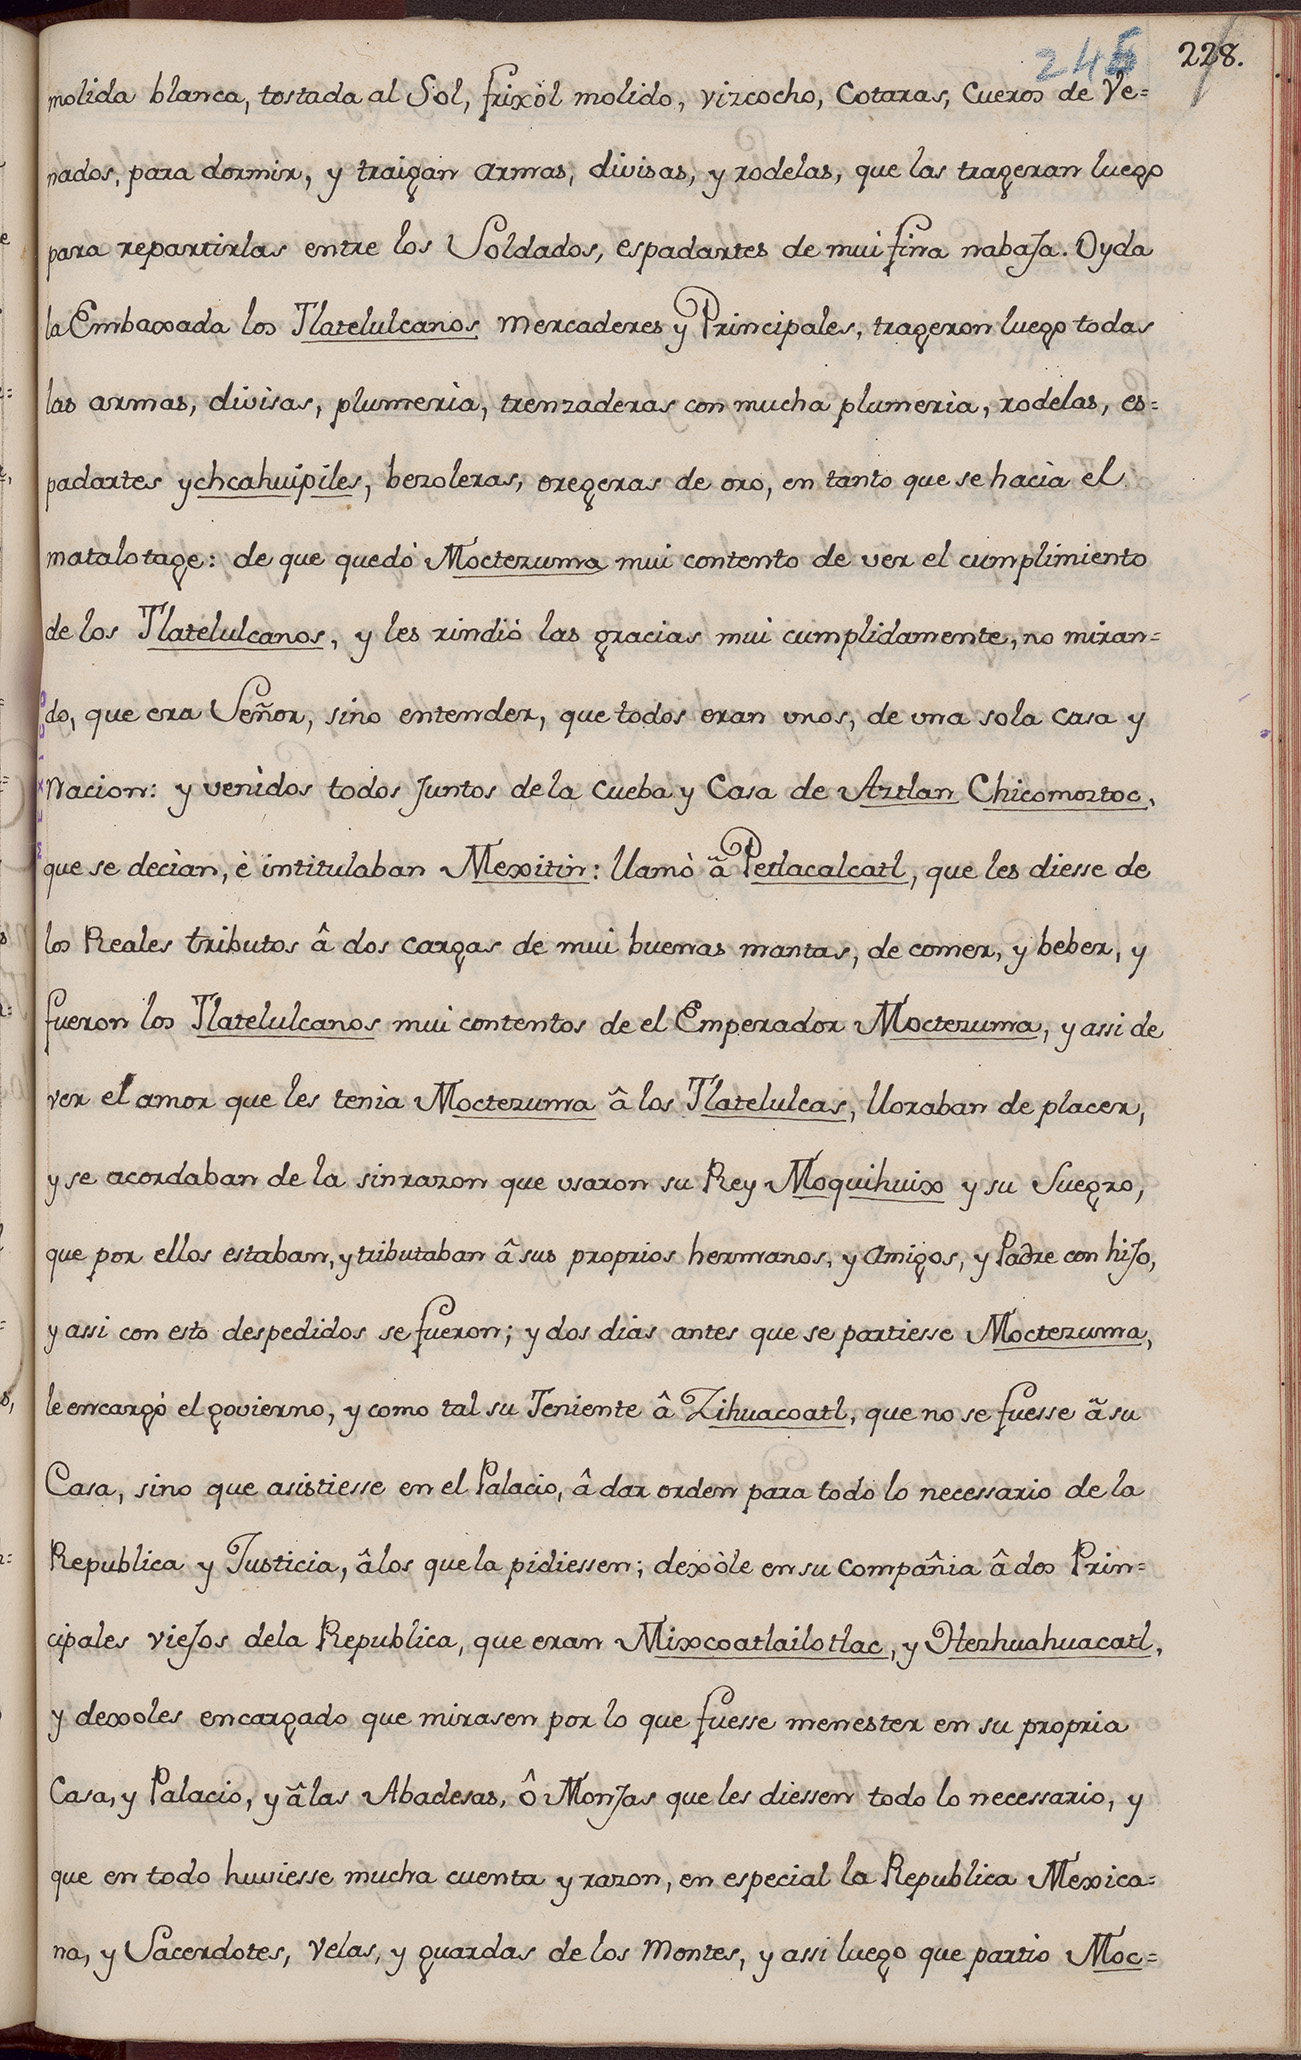 246 228.
molida blanca, tostada al Sol, frixòl molido, vizcocho, Cotaras, Cueros de Ve=
nados, para dormir, y traigan armas, divisas, y rodelas, que las trageran luego
para repartirlas entre los Soldados, espadartes de mui fina nabaJa. Oyda
la Embaxada los Tlatelulcanos Mercaderes y Principales, trageron luego todas
las armas, divisas, plumerìa, trenzaderas con mucha plumerìa, rodelas, es=
padartes ychcahuipiles, bezoleras, oregeras de oro, en tanto que se hacìa el
matalotage: de que quedò Moctezuma mui contento de ver el cumplimiento
de los Tlatelulcanos, y les rindió las gracias mui cumplidamente, no miran=
do, que era Señor, sino entender, que todos eran vnos, de vna sola Casa y
Nacion: y venìdos todos Juntos de la Cueba y Casa de Aztlan Chicomoztoc,
que se decìan, è intitulaban Mexitin: llamò â Petlacalcatl, que les diesse de
los Reales tributos â dos cargas de mui buenas mantas, de comer, y beber, y
fueron los Tlatelulcanos mui contentos de el Emperador Moctezuma, y assi de
ver el amor que les tenìa Moctezuma â los Tlatelulcas, lloraban de placer,
y se acordaban de la sinrazon que vsaron su Rey Moquihuix y su Suegro,
que por ellos estaban, y tributaban â sus proprios hermanos, y amigos, y Padre con hiJo,
y assi con esto despedidos se fueron; y dos dias antes que se partiesse Moctezuma,
le encargó el govierno, y como tal su Teniente â Zihuacoatl, que no se fuesse â su
Casa, sino que asistiesse en el Palacio, â dar orden para todo lo necessario de la
Republica y Justicia, â los que la pidiessen; dexòle en su Compañia â dos Prin=
cipales vieJos dela Republica, que eran Mixcoatlailotlac, y Otezhuahuacatl,
y dexoles encargado que mirasen por lo que fuesse menester en su propria
Casa, y Palacio, y â las Abadesas, ô MonJas que les diessen todo lo necessario, y
que en todo huviesse mucha cuenta y razon, en especial la Republica Mexica=
na, y Sacerdotes, Velas, y guardas de los Montes, y assi luego que partio Moc=